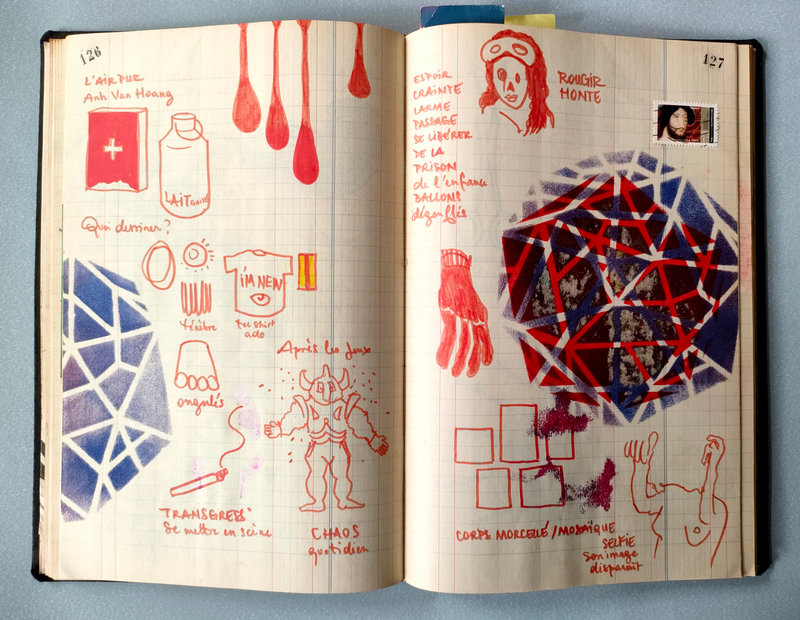 126
L'AIR PUR
Anh Van Hoang
LAIT
Que dessiner?
I'M NEW
ténèbre
tee shirt
ado
ongulés
Après les
TRANSGRESS°
Se mettre en scène
CHAOS
quotidien
127
ESPOIR
CRAINTE
LARME
PASSAGE
SE LIBÉRER
DE LA
PRISON
de l'enfance
BALLONS
dégonflés
ROUGIR
MONTE
CORPS MORCELLÉ/MOSAÏQUE
SELFIE
son image
disparaît